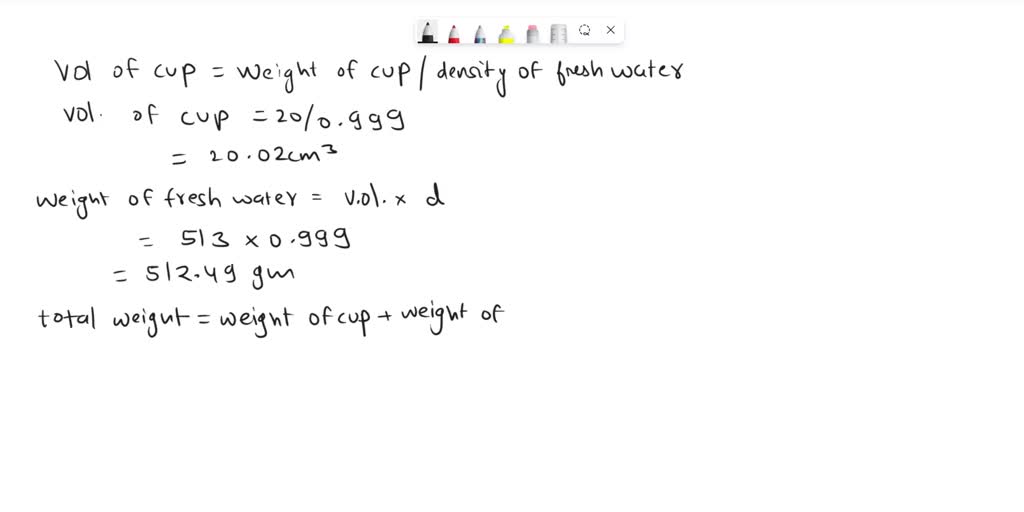 Vol of cup = weight of cup / density of fresh water
vol. of cup = 20/0.999
= 20.02cm³
weight of fresh water = vol. x d
= 513 x 0.999
= 512.49 gm
total weight = weight of cup + weight of